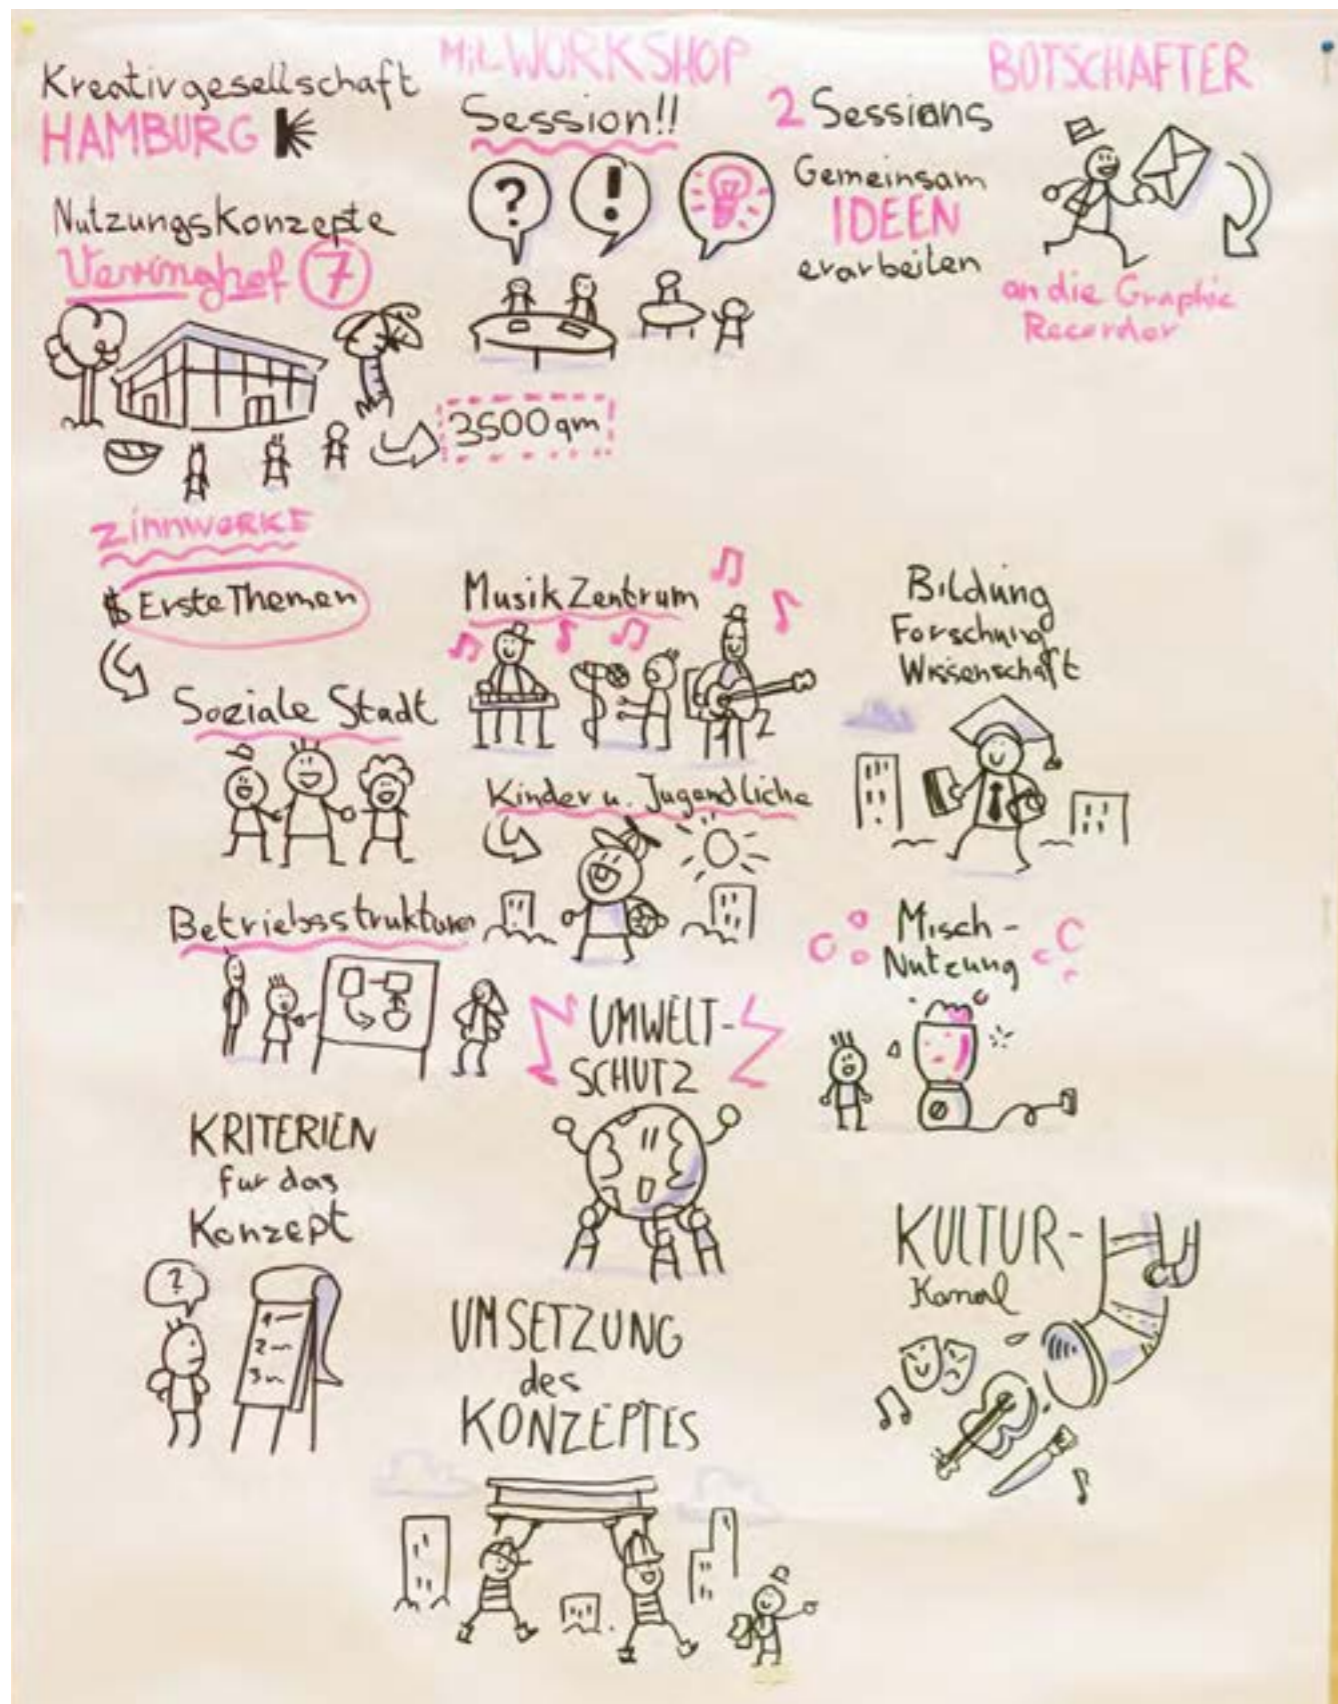 Kreativgesellschaft
HAMBURG
Nutzungskonzepte
Verringhof 7
3500qm
Zinnwerke
MiL WORKSHOP
Session!!
?
!
2 Sessions
Gemeinsam
IDEEN
erarbeiten
BOTSCHAFTER
an die Graphic
Recorder
$ Erste Themen
Soziale Stadt
Musik Zentrum
Kinder u. Jugendliche
Bildung
Forschung
Wissenschaft
Betriebsstrukturen
UMWELT-
SCHUTZ
Misch-
Nutzung
KRITERIEN
für das
Konzept
?
1
2
3
UMSETZUNG
des
KONZEPTES
KULTUR-
Kanal